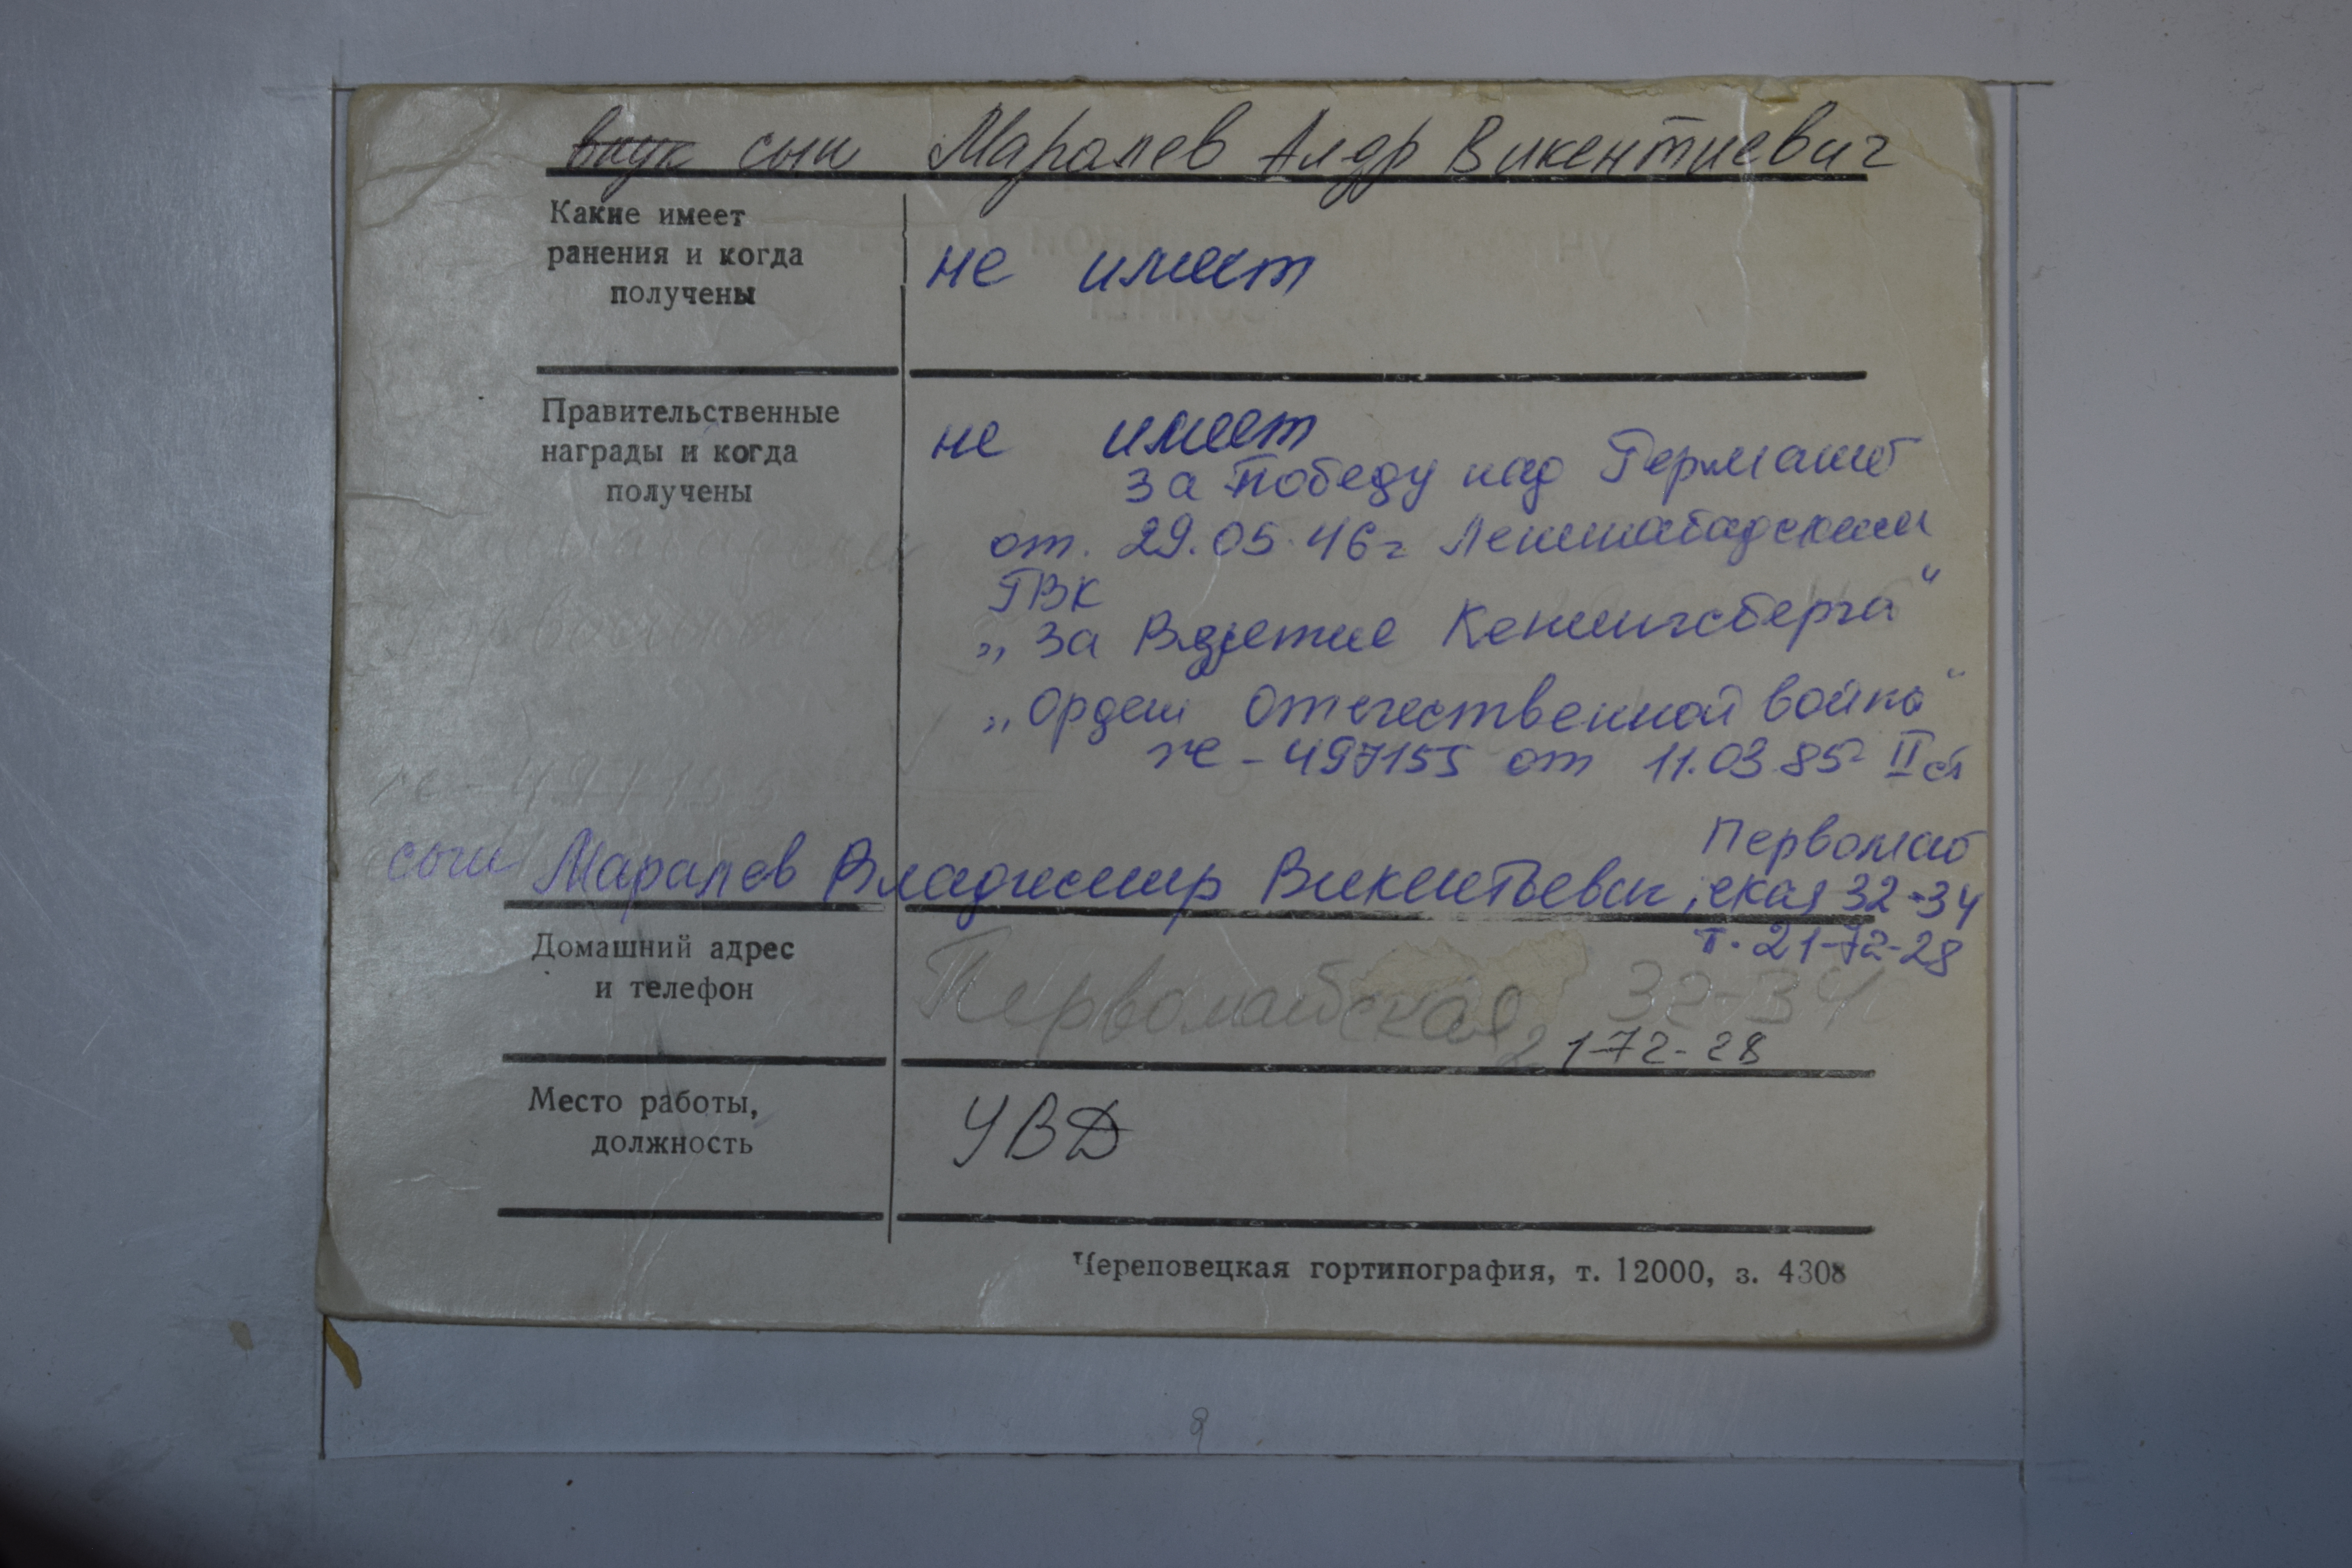 внук сын Маралев Алдр Викентиевич
Какие имеет
ранения и когда
получены
не имеет
Правительственные
награды и когда
получены
не имеет
За победу над Германией
от. 29.05.46г Ленинабадским
ГВК
„За Взятие Кенингсберга"
„Орден Отечественной войны"
не - 497155 от 11.03.85г II ст
Первомай
сын Маралев Владимир Викентьевич, ская 32-34
т. 21-72-28
Домашний адрес
и телефон
Первомайская 32-34
21-72-28
Место работы,
должность
УВД
Череповецкая гортипография, т. 12000, з. 4308
9